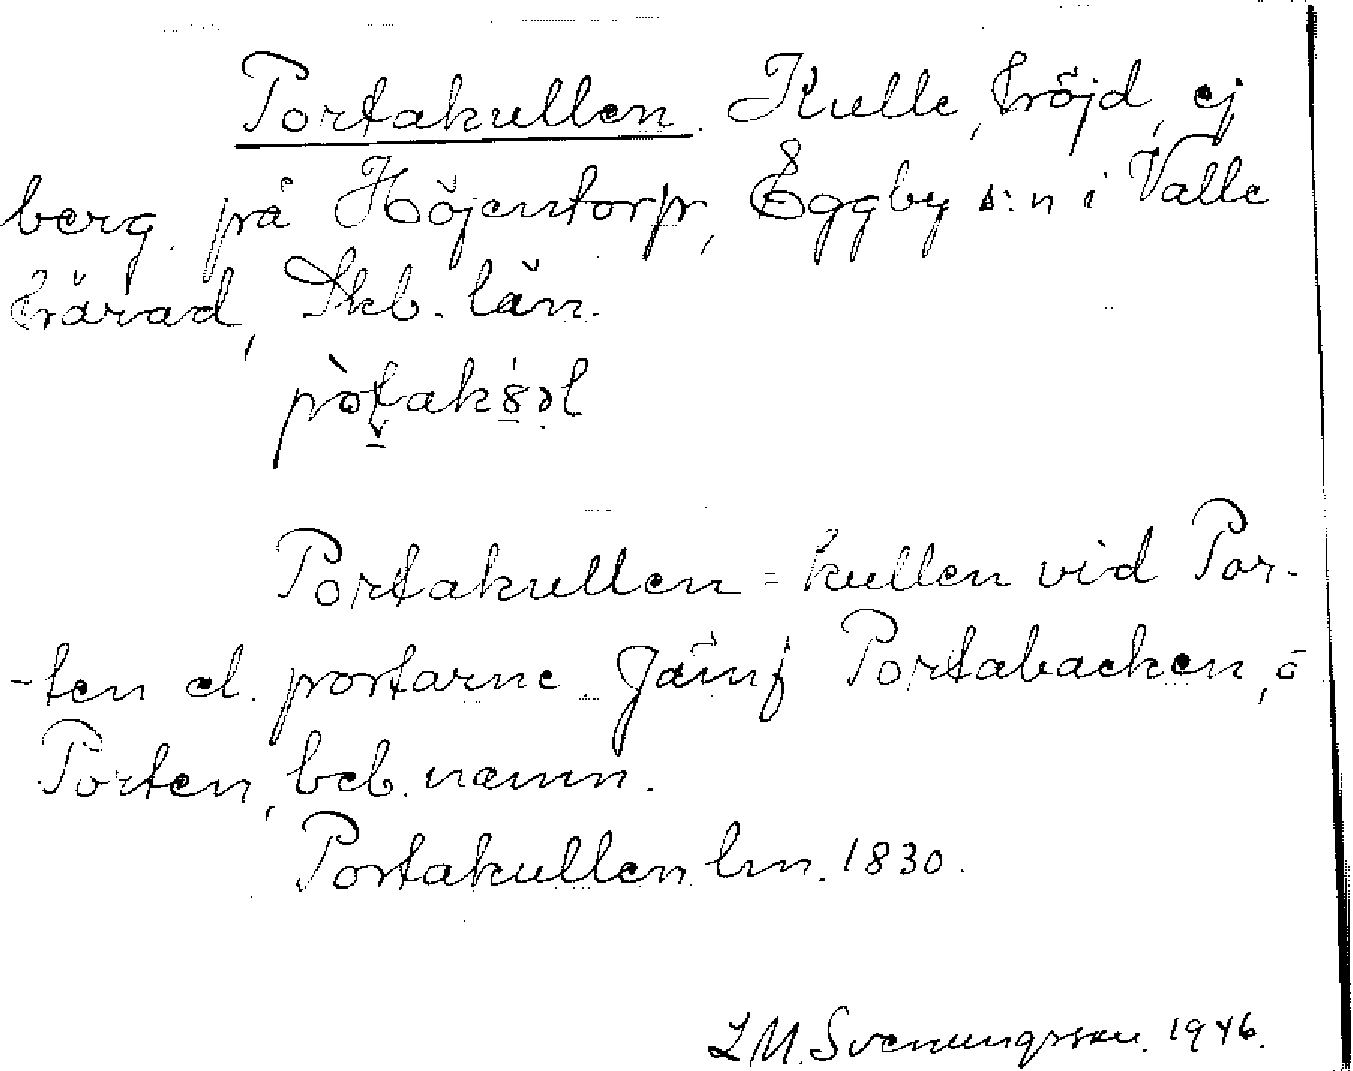 Portakullen. Kulle, höjd, ej
berg. på Höjentorp, Eggby s:n i Valle
härad, Skb. län.
Portakullen = kullen vid Por-
-ten el. portarne. Jämf Portabacken, o
Porten, beb. namn.
Portakullen lm. 1830.
L M. Svenungsson. 1946.